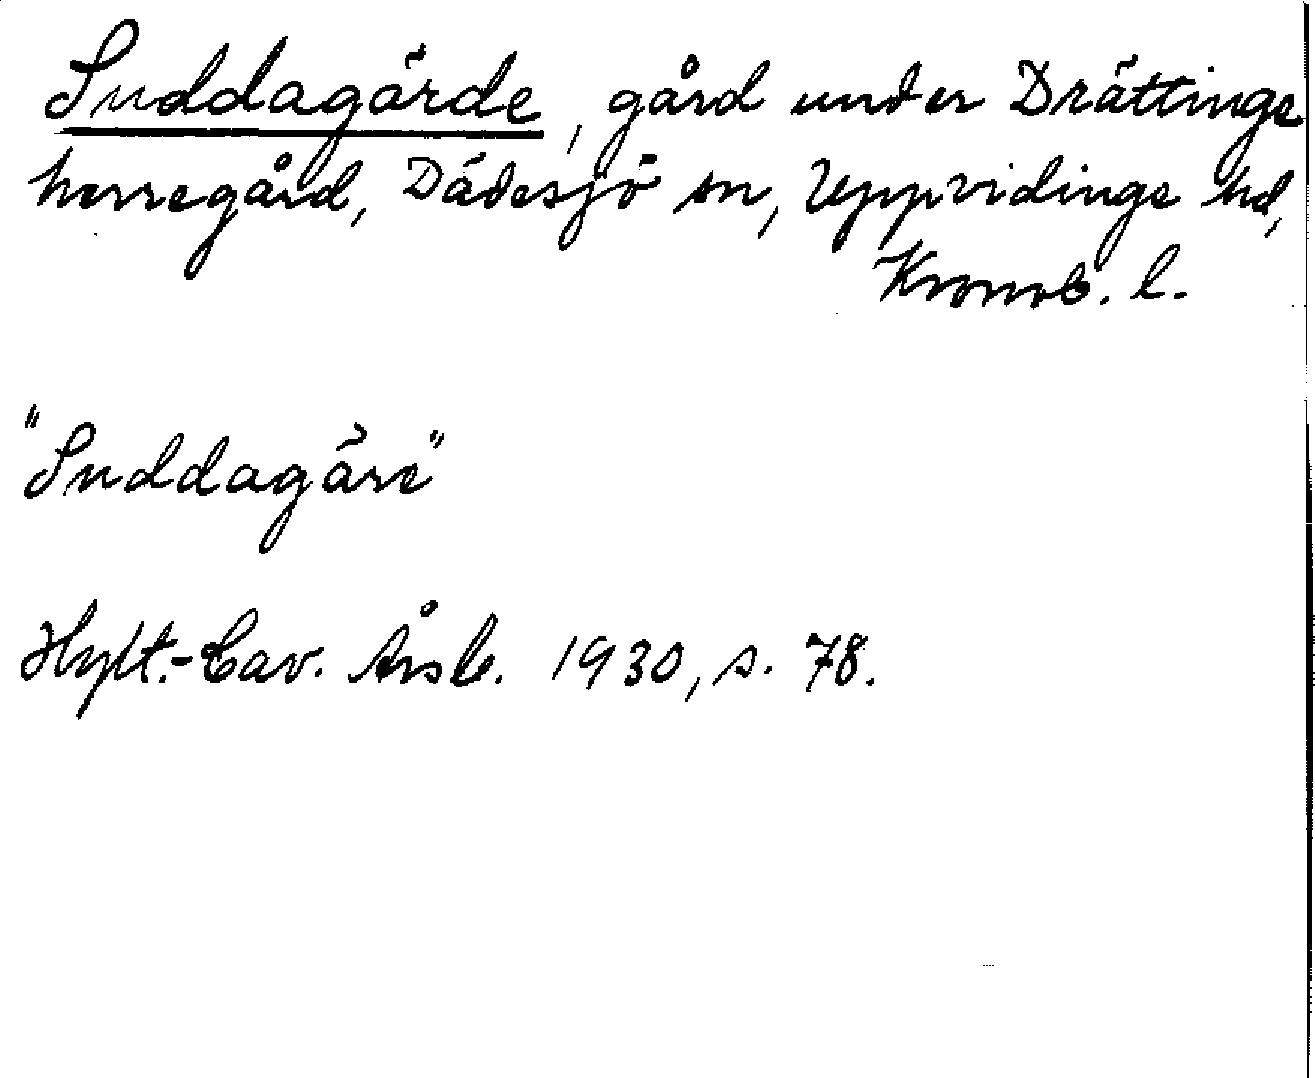 Suddagärde, gård under Drättinge
herregård, Dädesjö sn, Uppvidinge hd,
Kronob. l.
"Suddagäre"
Hylt.-Cav. Årsb. 1930, s. 78.